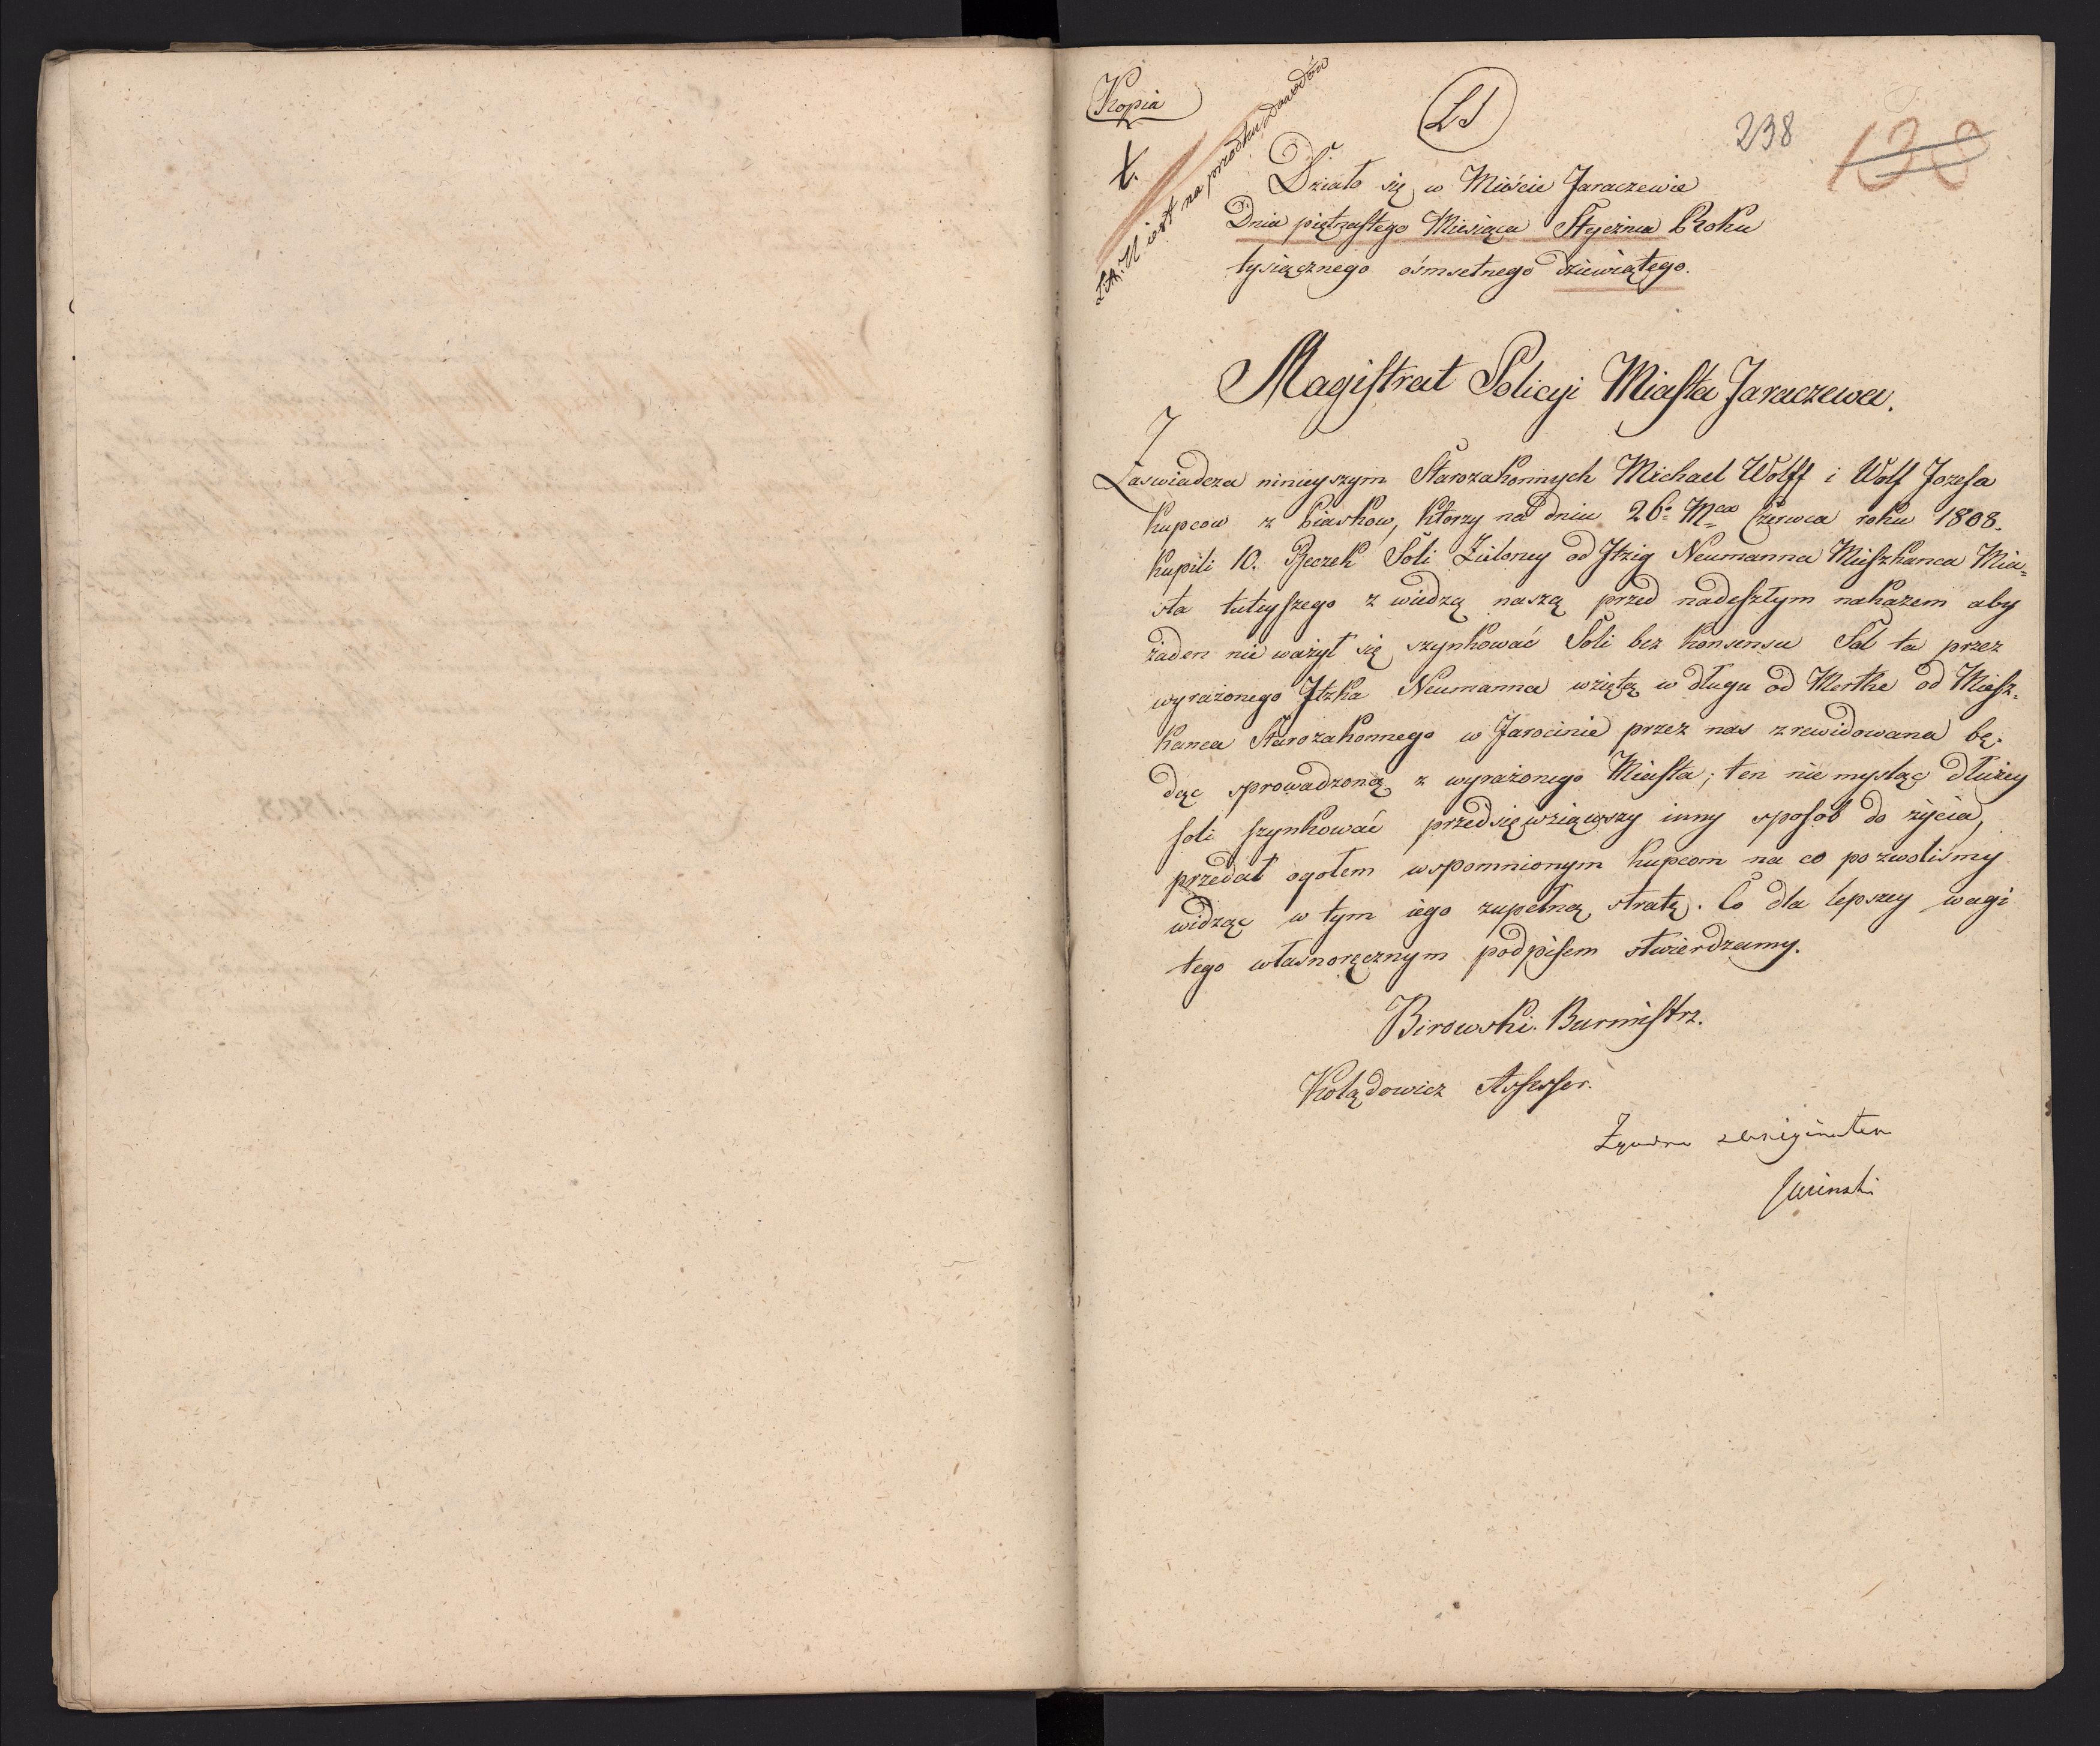 Kopia
t.
Litt: N iest na przodku Dowodów
LS
238
138
Działo się w Mieście Jaraczewie
Dnia piętnastego Miesiąca Stycznia Roku
tysiącznego ośmsetnego dziewiątego.
Magistrat Policyi Miasta Jaraczewa.
Zaswiadcza ninieyszym Starozakonnych Michael Wolff i Wolf Jozefa
kupcow z Piaskow, ktorzy na dniu 26: Mca Czerwca roku 1808.
kupili 10. Beczek Soli Zieloney od Itzig Neumanna Mieszkanca Mia=
sta tuteyszego z wiedzą naszą przed nadeszłym nakazem aby
żaden nie ważył się szynkować Soli bez konsensu Sol ta przez
wyrażonego Itzka Neumanna wziętą w długu od Mertke od Miesz=
kanca Starozakonnego w Jarocinie przez nas zrewidowana bę=
dąc sprowadzoną z wyrażonego Miasta; ten nie mysląc dłużey
soli szynkować przedsięwziąwszy inny sposob do życia,
przedał ogołem wspomnionym kupcom na co pozwoliśmy
widząc w tym iego zupełną stratę. Co dla lepszey wagi
tego własnoręcznym podpisem stwierdzamy.
Birowski. Burmistrz.
Kolędowicz Assessor.
Zgodno z originałem